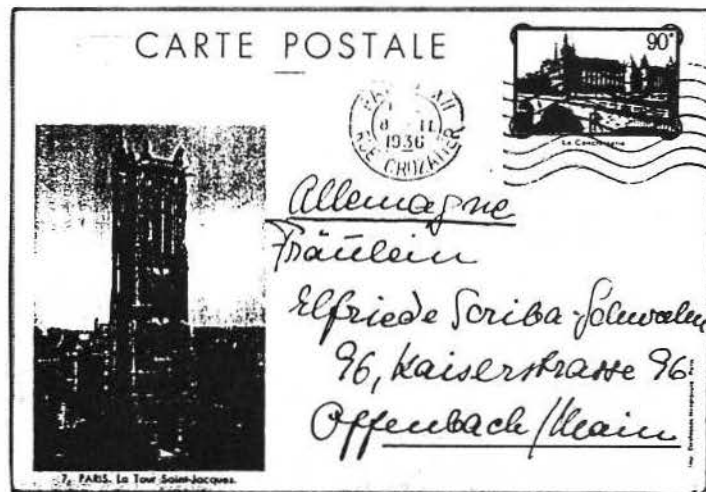 CARTE POSTALE
90ᶜ
PARIS XII
8 - II
1936
RUE CROZATIER
La Conciergerie
Allemagne
Fräulein
Elfriede Scriba-Schwalm
96, Kaiserstrasse 96
Offenbach/Main
7. PARIS. La Tour Saint-Jacques.